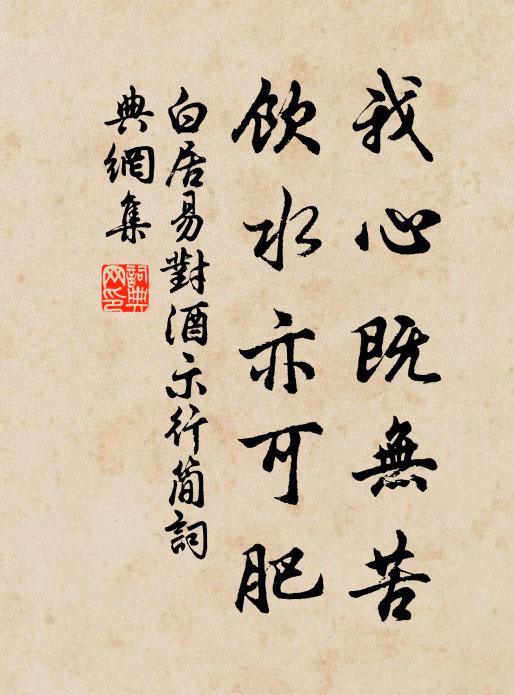 我心既無苦
飲水亦可肥
白居易對酒示行簡詞
典網集
詞典
网印